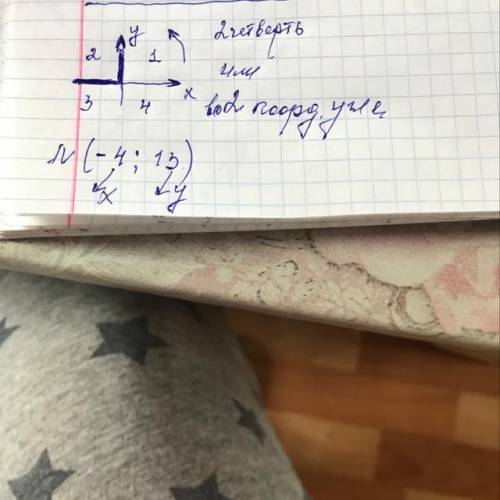 y
2 1
x
3 4
2 четверть
или
во 2 коорд. угле
N (-4; 13)
x y